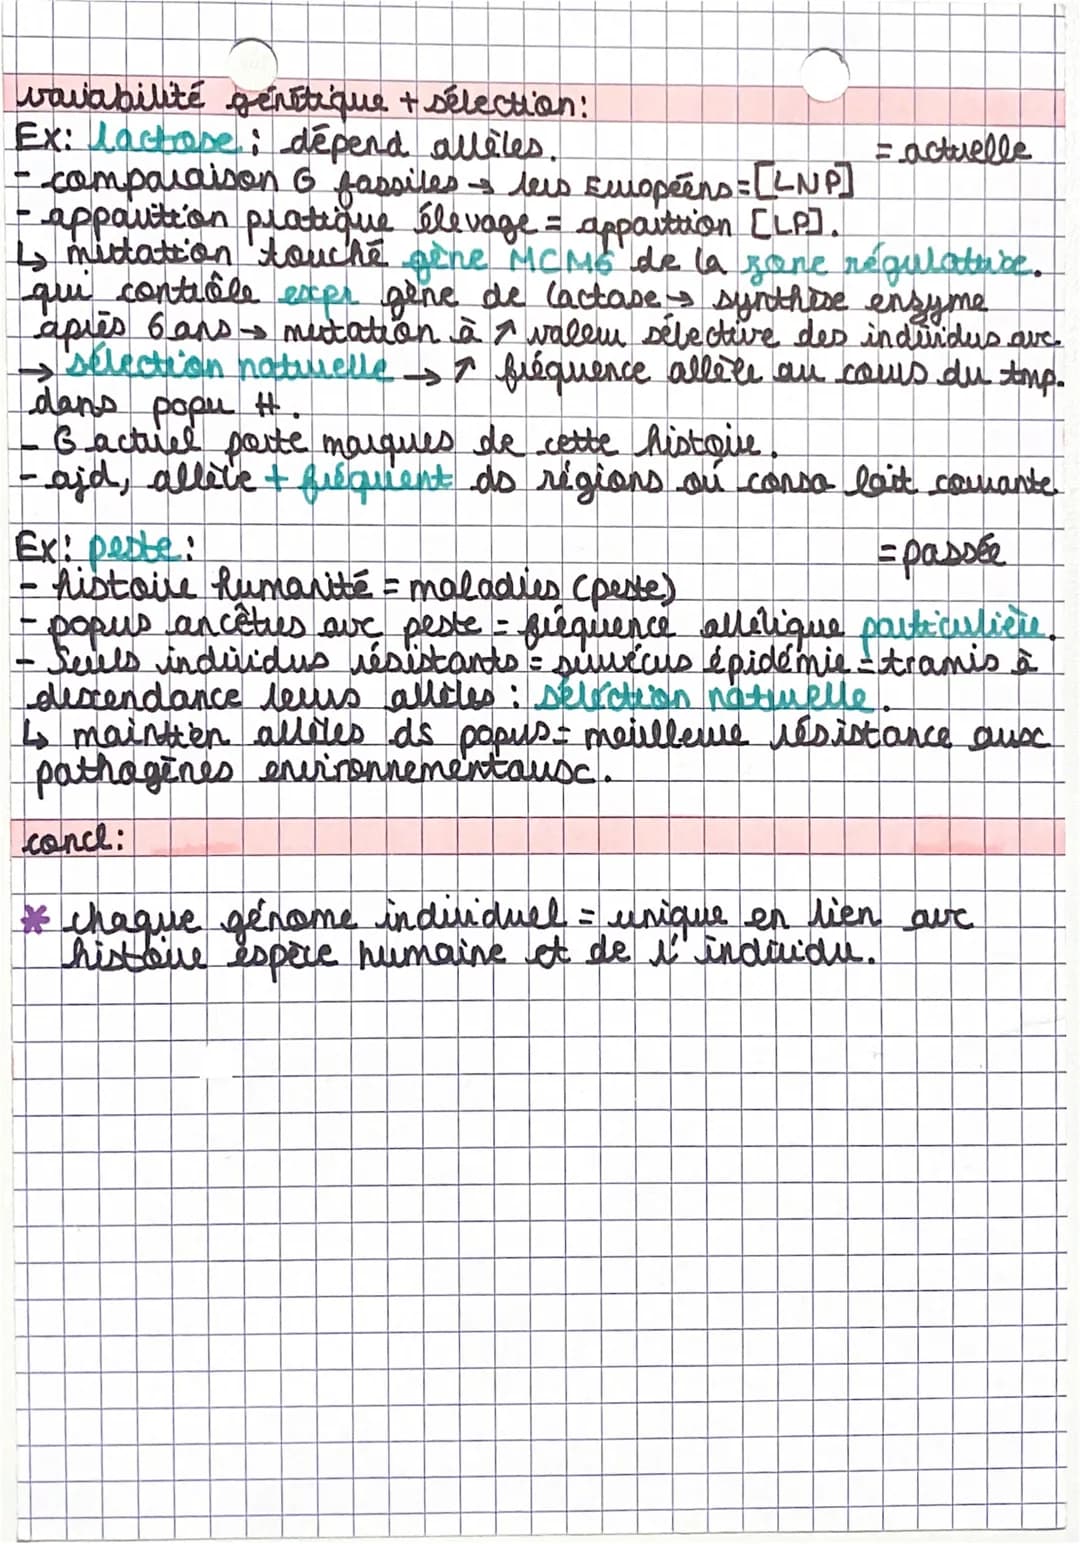 variabilité génétique + sélection:
Ex: lactose: dépend allèles. = actuelle
- comparaison G fossiles → 1ers Européens = [LNP]
- apparition pratique élevage = apparition [LP].
↳ mutation touché gène MCM6 de la zone régulatrice.
qui contrôle expr gène de lactase → synthèse enzyme
après 6 ans → mutation à ↗ valeur sélective des individus avc.
→ sélection naturelle → ↗ fréquence allèle au cours du tmp.
dans popu H.
- G actuel porte marques de cette histoire.
- ajd, allèle + fréquent ds régions où conso lait courante
Ex: peste: = passée
- histoire humanité = maladies (peste)
- popus ancêtres avc peste = fréquence allélique particulière.
- Seuls individus résistants = survécus épidémie = tramis à
descendance leurs allèles : sélection naturelle.
↳ maintien allèles ds popus = meilleure résistance aux
pathogènes environnementaux.
concl:
* chaque génome individuel = unique en lien avc
histoire espèce humaine et de l'individu.